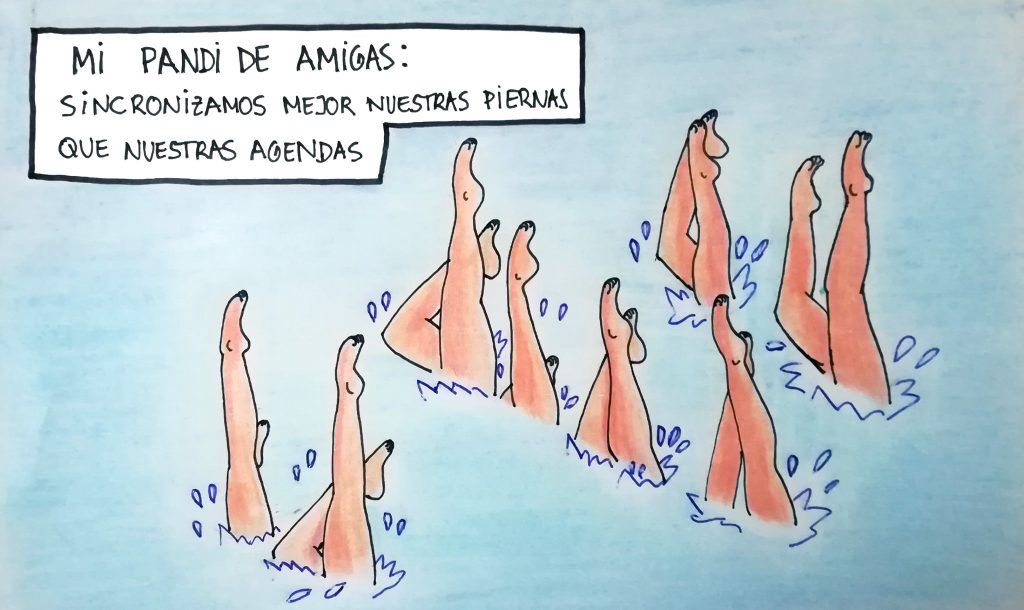 Mi PANDi DE AMiGAS:
SiNCRONiZAMOS MEJOR NUESTRAS PiERNAS
QUE NUESTRAS AGENDAS